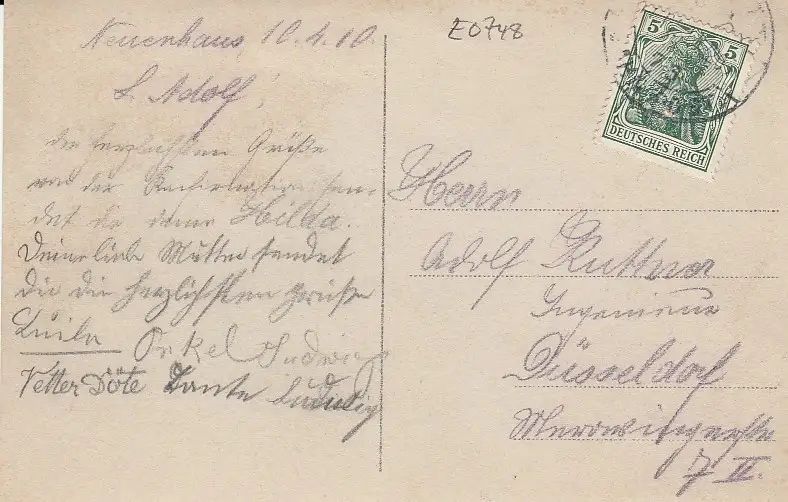 E0748
5 5
DEUTSCHES REICH
Neuenhaus, 10.4.10.
L. Adolf!
die herzlichsten Grüße
von der
det dir deine Hilda.
Deine liebe Mutter sendet
dir die herzlichsten Grüße
Onkel Ludwig
Vetter Döte Tante Ludwig
Herrn
Adolf Ruttner
Ingenieur
Düsseldorf
Merowingerstr.
7 II.